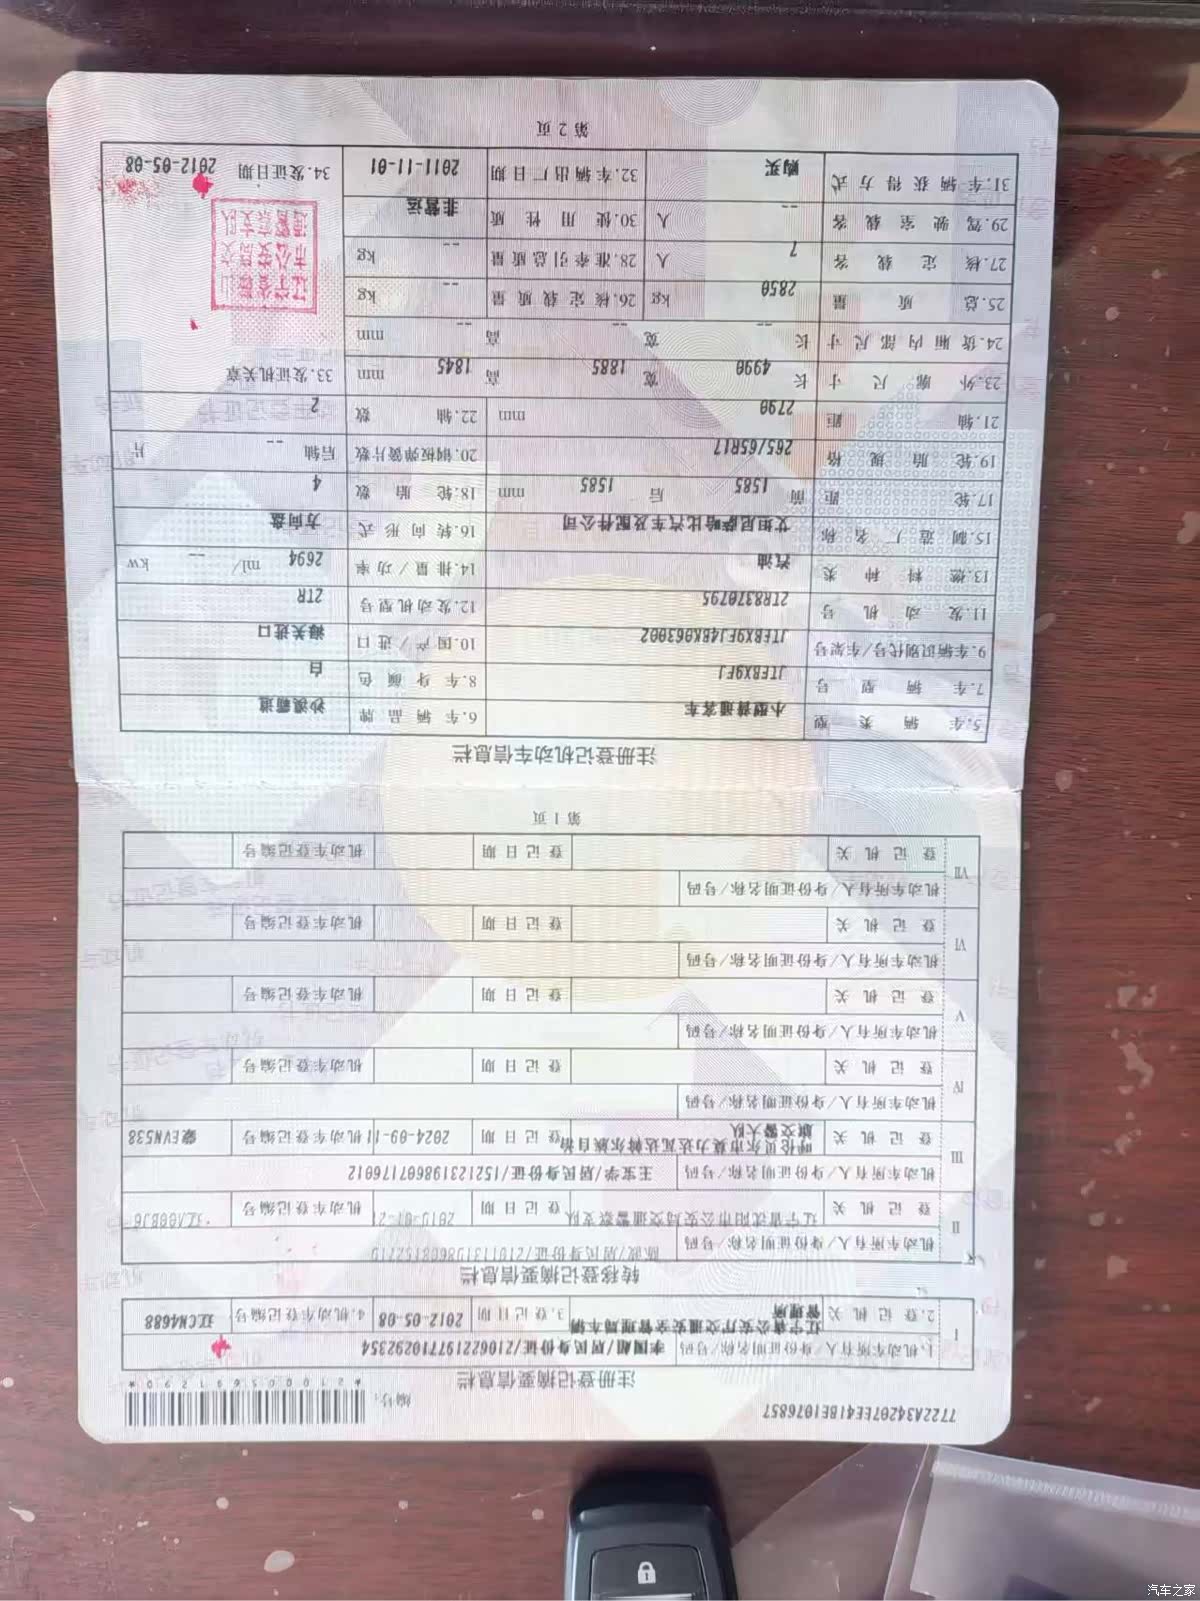 7722A34207EE41BE1076857
编号:
*210005691290*
注册登记摘要信息栏
I 1.机动车所有人/身份证明名称/号码 李国超/居民身份证/210622197710292354
2.登记机关 辽宁省公安厅交通安全管理局车辆管理所 3.登记日期 2012-05-08 4.机动车登记编号 辽CN4688
转移登记摘要信息栏
II 机动车所有人/身份证明名称/号码 陈波/居民身份证/
登记机关 辽宁省沈阳市公安局交通警察支队 登记日期 2019-01-21 机动车登记编号
III 机动车所有人/身份证明名称/号码 王宝学/居民身份证/152123198607176012
登记机关 呼伦贝尔市莫力达瓦达斡尔族自治旗交警大队 登记日期 2024-09-11 机动车登记编号 蒙EVN538
IV 机动车所有人/身份证明名称/号码
登记机关 登记日期 机动车登记编号
V 机动车所有人/身份证明名称/号码
登记机关 登记日期 机动车登记编号
VI 机动车所有人/身份证明名称/号码
登记机关 登记日期 机动车登记编号
VII 机动车所有人/身份证明名称/号码
登记机关 登记日期 机动车登记编号
第1页
注册登记机动车信息栏
5.车辆类型 小型普通客车 6.车辆品牌 沙漠霸道
7.车辆型号 JTEBX9FJ 8.车身颜色 白
9.车辆识别代号/车架号 JTEBX9FJ4BK063002 10.国产/进口 海关进口
11.发动机号 2TR8370795 12.发动机型号 2TR
13.燃料种类 汽油 14.排量/功率 2694 ml/ -- kw
15.制造厂名称 艾坦尼萨哈比汽车及配件公司 16.转向形式 方向盘
17.轮距 前 1585 后 1585 mm 18.轮胎数 4
19.轮胎规格 265/65R17 20.钢板弹簧片数 后轴 -- 片
21.轴距 2790 mm 22.轴数 2
23.外廓尺寸 长 4990 宽 1885 高 1845 mm 33.发证机关章
24.货厢内部尺寸 长 -- 宽 -- 高 -- mm
25.总质量 2850 kg 26.核定载质量 -- kg
27.核定载客 7 人 28.准牵引总质量 -- kg
29.驾驶室载客 -- 人 30.使用性质 非营运
31.车辆获得方式 购买 32.车辆出厂日期 2011-11-01 34.发证日期 2012-05-08
第2页
汽车之家